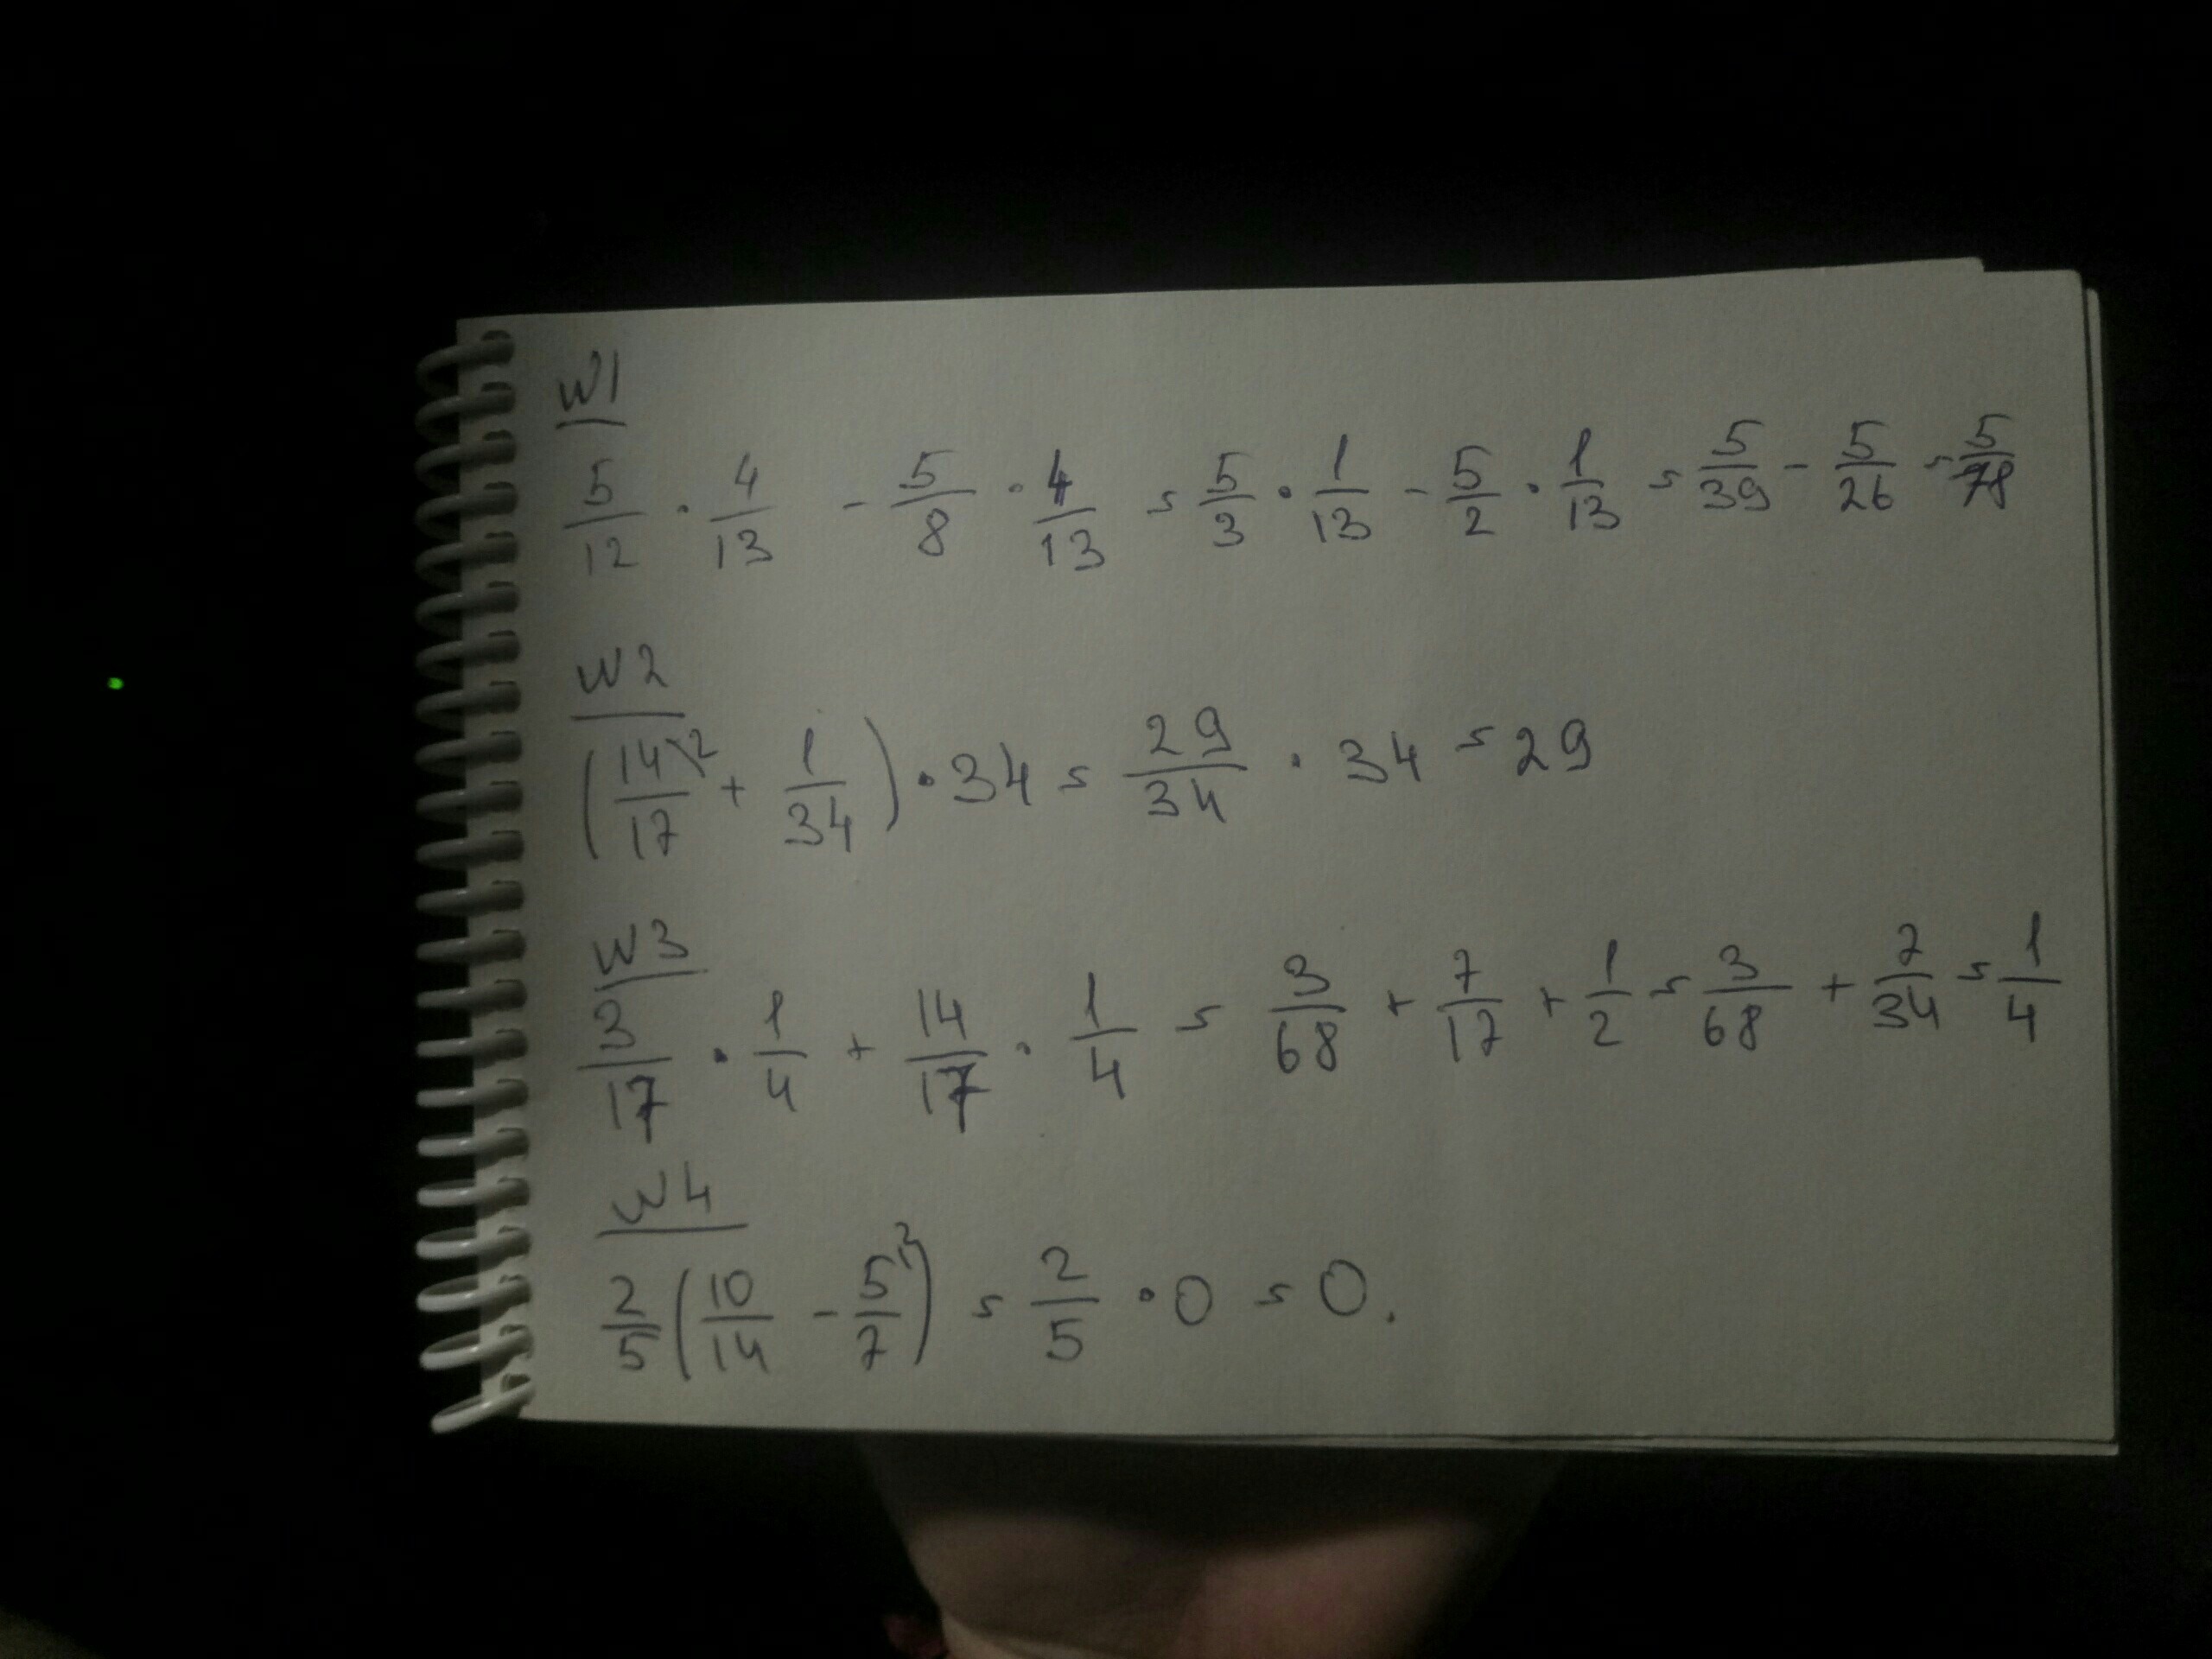 N1
5/12 · 4/13 - 5/8 · 4/13 = 5/3 · 1/13 - 5/2 · 1/13 = 5/39 - 5/26 = 5/78
N2
(14\2/17 + 1/34) · 34 = 29/34 · 34 = 29
N3
3/17 · 1/4 + 14/17 · 1/4 = 3/68 + 7/17 + 1/2 = 3/68 + 7/34 = 1/4
N4
2/5 (10/14 - 5\2/7) = 2/5 · 0 = 0.